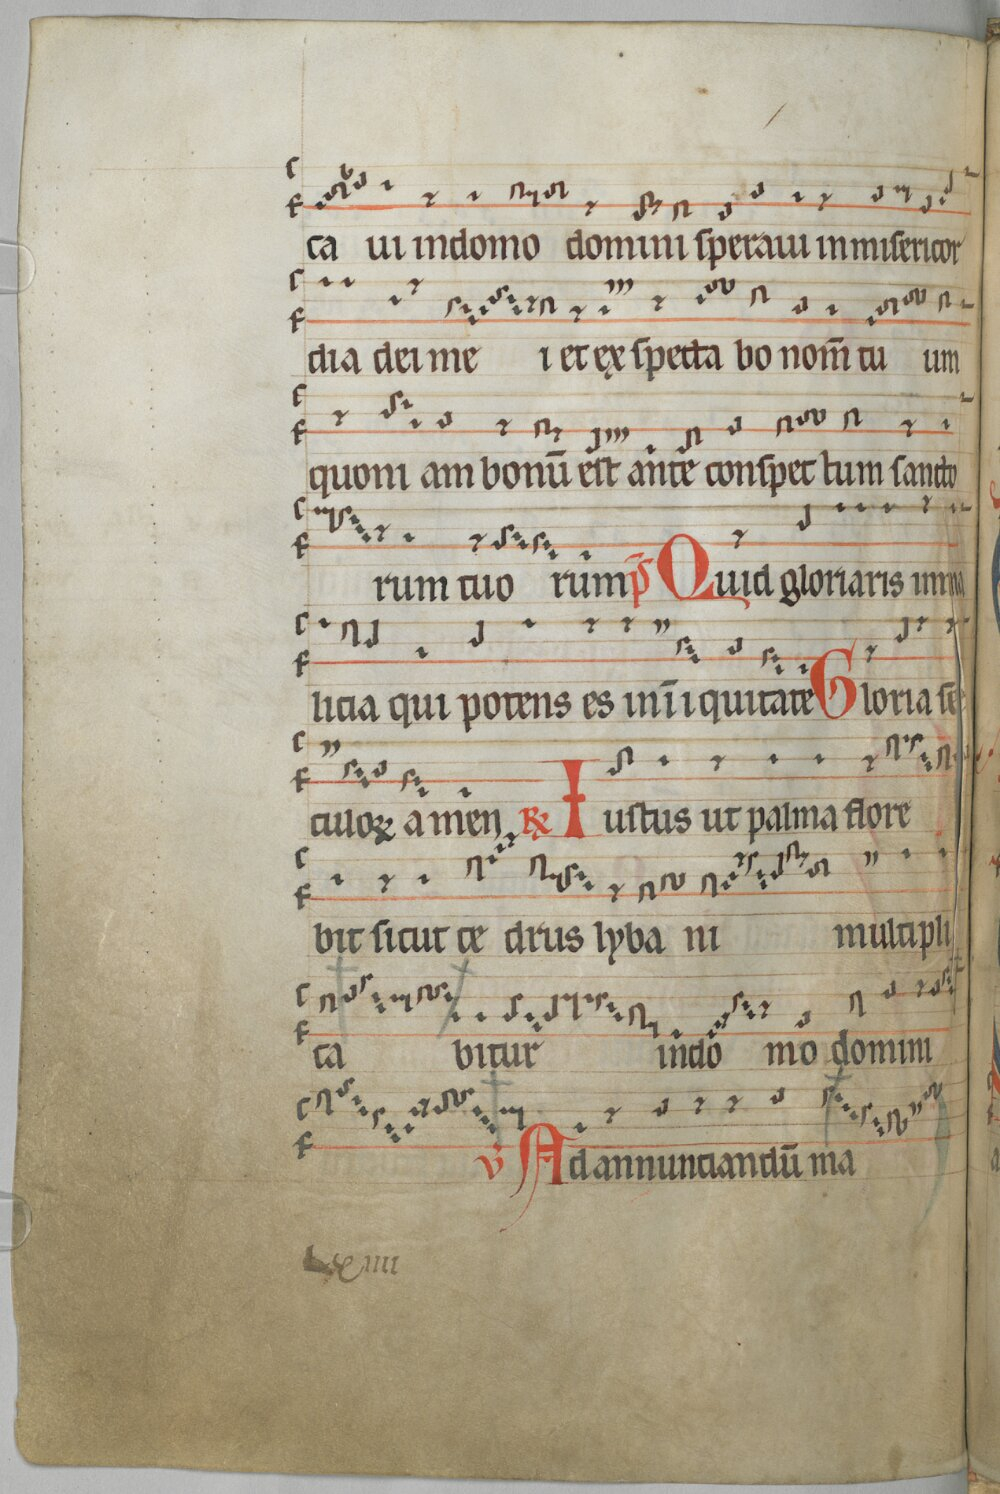 ca ui in domo domini speraui in misericor
dia dei me i et exspecta bo nom̄ tu um
quoni am bonū est ante conspec tum sancto
rum tuo rum p̄s Quid gloriaris in ma
licia qui potens es in īiquitate Gloria se
culoꝝ amen ℟ Iustus ut palma flore
bit sicut ce drus lyba ni multipli
ca bitur in do mo domini
v̄ Ad annunciandū ma
Lxiiii